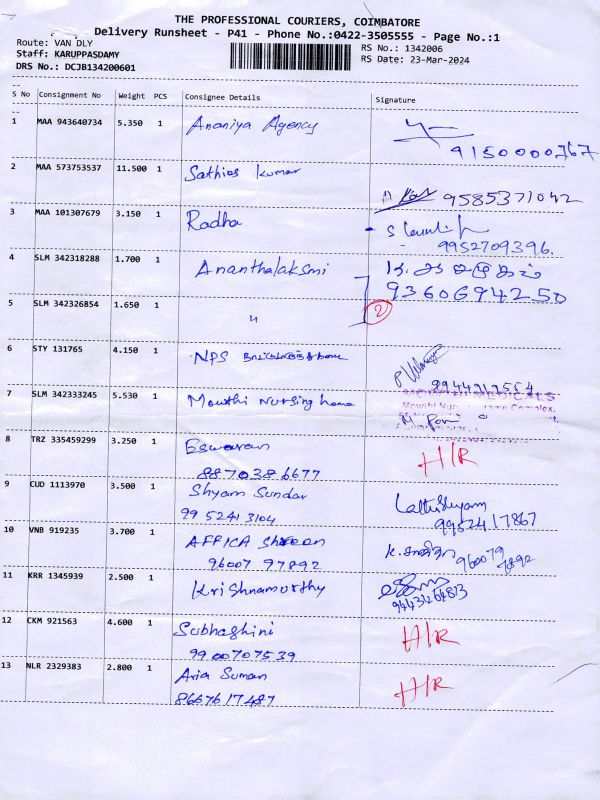 THE PROFESSIONAL COURIERS, COIMBATORE
Delivery Runsheet - P41 - Phone No.:0422-3505555 - Page No.:1
Route: VAN DLY
Staff: KARUPPASDAMY
DRS No.: DCJB134200601
RS No.: 1342006
RS Date: 23-Mar-2024
S No Consignment No Weight PCS Consignee Details Signature
1 MAA 943640734 5.350 1 Ananiya Agency
9150000767
2 MAA 573753537 11.500 1 Sathios Kumar
9585371042
3 MAA 101307679 3.150 1 Radha
9952709396.
4 SLM 342318288 1.700 1 Ananthalaksmi
9360694250
5 SLM 342326854 1.650 1 "
2
6 STY 131765 4.150 1 NPS
7 SLM 342333245 5.530 1 Mowthi Nursing home
8 TRZ 335459299 3.250 1 Eswaran H/R
8870386677
9 CUD 1113970 3.500 1 Shyam Sundar
99 5241 3104
9952417867
10 VNB 919235 3.700 1 AFFICA
96007 97892
960079
7892
11 KRR 1345939 2.500 1 Krishnamurthy
12 CKM 921563 4.600 1 Subhashini H/R
9900707539
13 NLR 2329383 2.800 1 Aria Suman H/R
8667617487